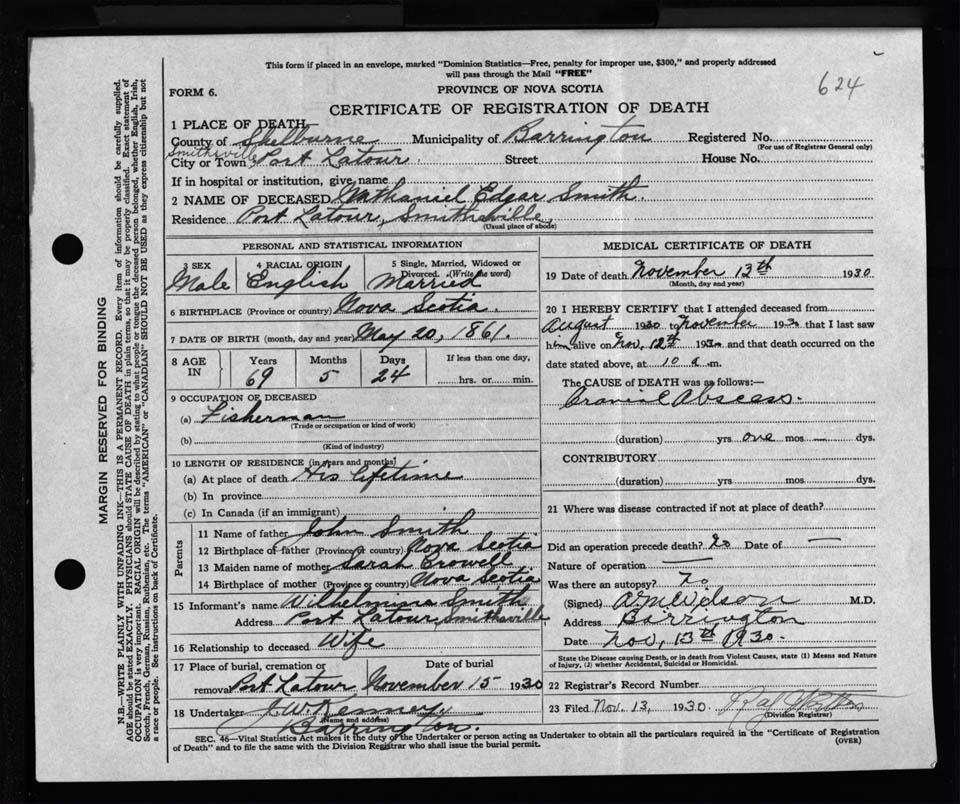 This form if placed in an envelope, marked "Dominion Statistics—Free, penalty for improper use, $300," and properly addressed
will pass through the Mail "FREE"
624
FORM 6.
PROVINCE OF NOVA SCOTIA
CERTIFICATE OF REGISTRATION OF DEATH
1 PLACE OF DEATH
County of Shelburne Municipality of Barrington Registered No.
(For use of Registrar General only)
Smithsville
City or Town Port Latour Street House No.
If in hospital or institution, give name
2 NAME OF DECEASED Nathaniel Edgar Smith
Residence Port Latour, Smithsville
(Usual place of abode)
PERSONAL AND STATISTICAL INFORMATION
3 SEX 4 RACIAL ORIGIN 5 Single, Married, Widowed or
Divorced. (Write the word)
Male English Married
6 BIRTHPLACE (Province or country) Nova Scotia.
7 DATE OF BIRTH (month, day and year) May 20, 1861.
8 AGE IN Years Months Days If less than one day,
69 5 24 hrs. or min.
9 OCCUPATION OF DECEASED
(a) Fisherman
(Trade or occupation or kind of work)
(b)
(Kind of industry)
10 LENGTH OF RESIDENCE (in years and months)
(a) At place of death His lifetime
(b) In province
(c) In Canada (if an immigrant)
Parents
11 Name of father John Smith
12 Birthplace of father (Province or country) Nova Scotia
13 Maiden name of mother Sarah Crowell
14 Birthplace of mother (Province or country) Nova Scotia
15 Informant's name Wilhelmina Smith
Address Port Latour, Smithsville
16 Relationship to deceased Wife
17 Place of burial, cremation or Date of burial
removal Port Latour November 15 1930
18 Undertaker J. W. Kenney
(Name and address)
Barrington.
MEDICAL CERTIFICATE OF DEATH
19 Date of death November 13th 1930
(Month, day and year)
20 I HEREBY CERTIFY that I attended deceased from
August 1930 to November 1930 that I last saw
him alive on Nov. 12th 1930 and that death occurred on the
date stated above, at 10 a.m.
The CAUSE of DEATH was as follows:—
Cranial Abscess.
(duration) yrs one mos — dys.
CONTRIBUTORY
(duration) yrs mos dys.
21 Where was disease contracted if not at place of death?
Did an operation precede death? No Date of —
Nature of operation —
Was there an autopsy? No
(Signed) A. M. Wilson M.D.
Address Barrington
Date Nov, 13th 1930.
State the Disease causing Death, or in death from Violent Causes, state (1) Means and Nature
of Injury, (2) whether Accidental, Suicidal or Homicidal.
22 Registrar's Record Number
23 Filed Nov. 13, 1930.
(Division Registrar)
SEC. 46—Vital Statistics Act makes it the duty of the Undertaker or person acting as Undertaker to obtain all the particulars required in the "Certificate of Registration
of Death" and to file the same with the Division Registrar who shall issue the burial permit.
(OVER)
MARGIN RESERVED FOR BINDING
N.B.—WRITE PLAINLY WITH UNFADING INK—THIS IS A PERMANENT RECORD. Every item of information should be carefully supplied.
AGE should be stated EXACTLY. PHYSICIANS should STATE CAUSE OF DEATH in plain terms, so that it may be properly classified. Exact statement of
OCCUPATION is very important. RACIAL ORIGIN will be described by stating to what people or tongue the deceased person belonged, whether English, Irish,
Scotch, French, German, Russian, Ruthenian, etc. The terms "AMERICAN" or "CANADIAN" SHOULD NOT BE USED as they express citizenship but not
a race or people. See instructions on back of Certificate.